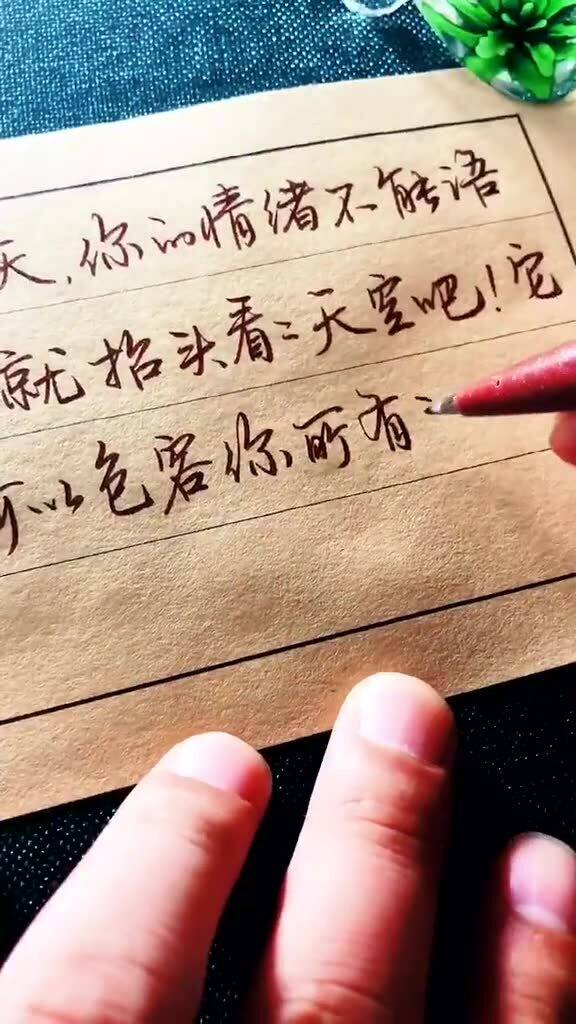 天,你的情绪不能语
就抬头看二天空吧!它
可以包容你所有